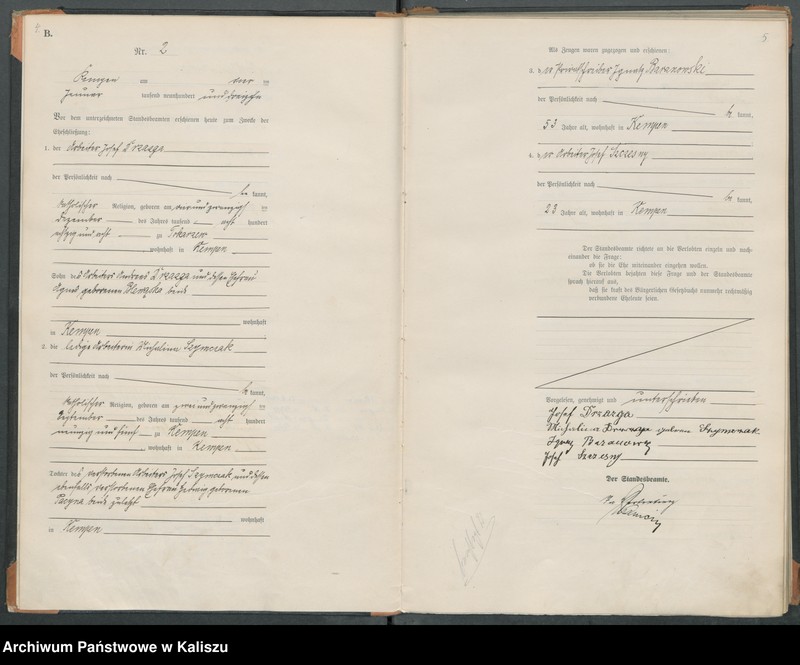 B.
Nr. 2
Kempen am vier ten
Januar tausend neunhundert und dreizehn
Vor dem unterzeichneten Standesbeamten erschienen heute zum Zwecke der
Eheschließung:
1. der Arbeiter Josef Drzazga
der Persönlichkeit nach
be kannt,
katholischer Religion, geboren am vierundzwanzig ten
Dezember des Jahres tausend acht hundert
achtzig und acht zu
wohnhaft in Kempen
Sohn des Arbeiters Andreas Drzazga und dessen Ehefrau
Agnes, geborenen beide
wohnhaft
in Kempen
2. die ledige Arbeiterin Michalina Szymczak
der Persönlichkeit nach
be kannt,
katholischer Religion, geboren am zweiundzwanzig ten
September des Jahres tausend acht hundert
neunzig und fünf zu Kempen
wohnhaft in Kempen
Tochter des verstorbenen Arbeiters Josef Szymczak und dessen
ebenfalls verstorbenen Ehefrau Hedwig geborenen
beide zuletzt
wohnhaft
in Kempen
5
Als Zeugen waren zugezogen und erschienen:
3. der Ignatz Baranowski
der Persönlichkeit nach
be kannt,
53 Jahre alt, wohnhaft in Kempen
4. der Arbeiter Josef Szczesny
der Persönlichkeit nach
be kannt,
23 Jahre alt, wohnhaft in Kempen
Der Standesbeamte richtete an die Verlobten einzeln und nach-
einander die Frage:
ob sie die Ehe miteinander eingehen wollen.
Die Verlobten bejahten diese Frage und der Standesbeamte
sprach hierauf aus,
daß sie kraft des Bürgerlichen Gesetzbuchs nunmehr rechtmäßig
verbundene Eheleute seien.
Vorgelesen, genehmigt und unterschrieben
Josef Drzazga
Michalina Drzazga geboren Szymczak
Ignacy Baranowski
Josef Szczesny
Der Standesbeamte.
In Vertretung
Archiwum Państwowe w Kaliszu